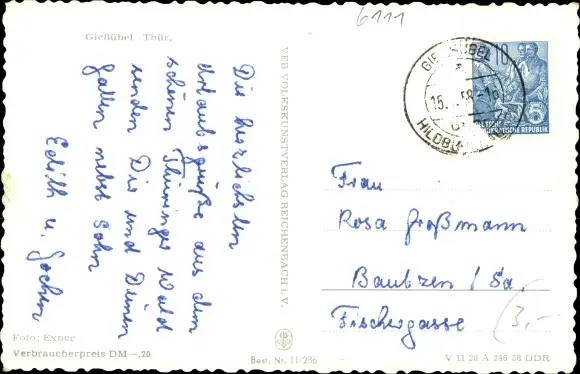 6111
Gießübel Thür.
Die herzlichsten
Urlaubsgrüße aus dem
schönen Thüringer Wald
senden Dir und Deinen
Gatten nebst Sohn
Edith u. Jochen
Foto: Exner
Verbraucherpreis DM –,20
VEB VOLKSKUNSTVERLAG REICHENBACH i. V.
Best. Nr. 11/236
GIESSÜBEL
15. 58-18
HILDBU
10
5
DEUTSCHE
DEMOKRATISCHE REPUBLIK
Frau
Rosa Großmann
Bautzen / Sa.
Fischergasse
3,-
V 11 28 A 246 58 DDR